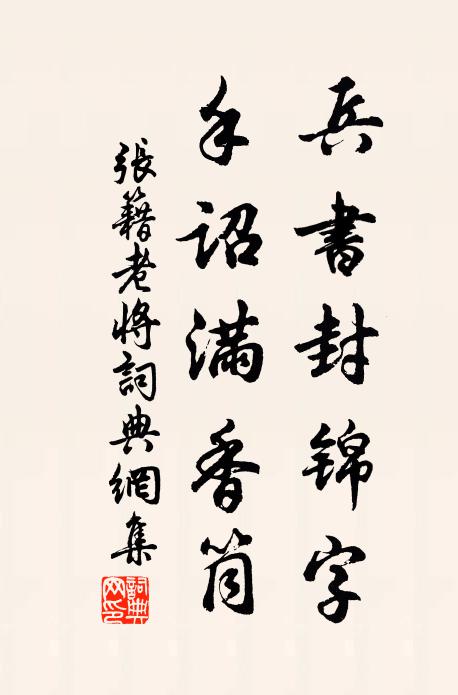 兵書封錦字
手詔滿香筒
張籍老將詞典網集
詞典网印